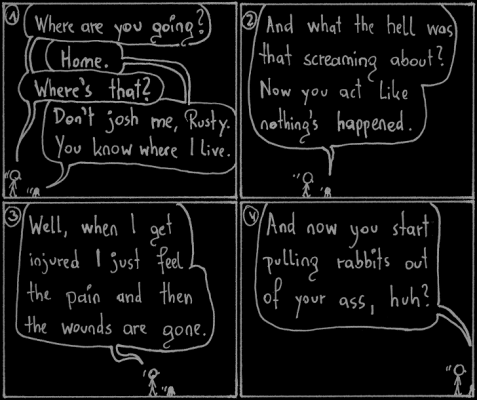 1
Where are you going?
Home.
Where's that?
Don't josh me, Rusty.
You know where I live.
2
And what the hell was
that screaming about?
Now you act like
nothing's happened.
3
Well, when I get
injured I just feel
the pain and then
the wounds are gone.
4
And now you start
pulling rabbits out
of your ass, huh?